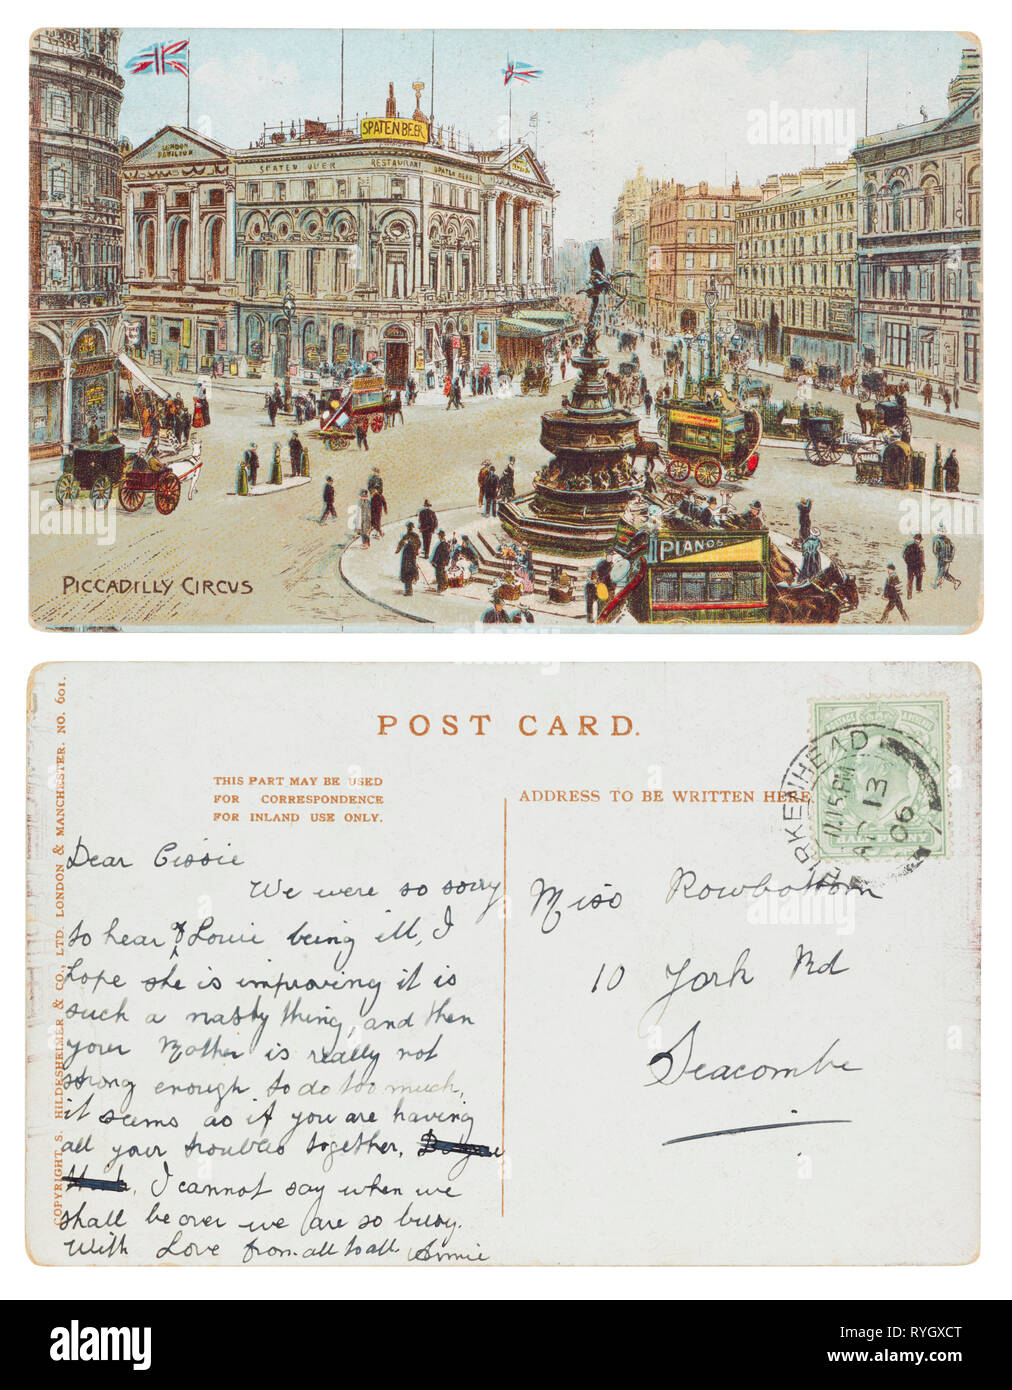 LONDON
PAVILION
SPATENBEER
SPATEN BEER RESTAURANT
SPATEN BEER
PIANOS
PICCADILLY CIRCUS
alamy
POST CARD.
THIS PART MAY BE USED
FOR CORRESPONDENCE
FOR INLAND USE ONLY.
ADDRESS TO BE WRITTEN HERE
COPYRIGHT S. HILDESHEIMER & CO., LTD. LONDON & MANCHESTER. NO. 601.
BIRKENHEAD
11.15PM
AP 13
06
POSTAGE & REVENUE
HALFPENNY
Dear Cissie
We were so sorry
to hear of Louie being ill, I
hope she is improving it is
such a nasty thing, and then
your Mother is really not
strong enough to do too much,
it seems as if you are having
all your troubles together.
I cannot say when we
shall be over we are so busy.
With Love from all to all Annie
Miss Rowbottom
10 York Rd
Seacombe
alamy
Image ID: RYGXCT
www.alamy.com